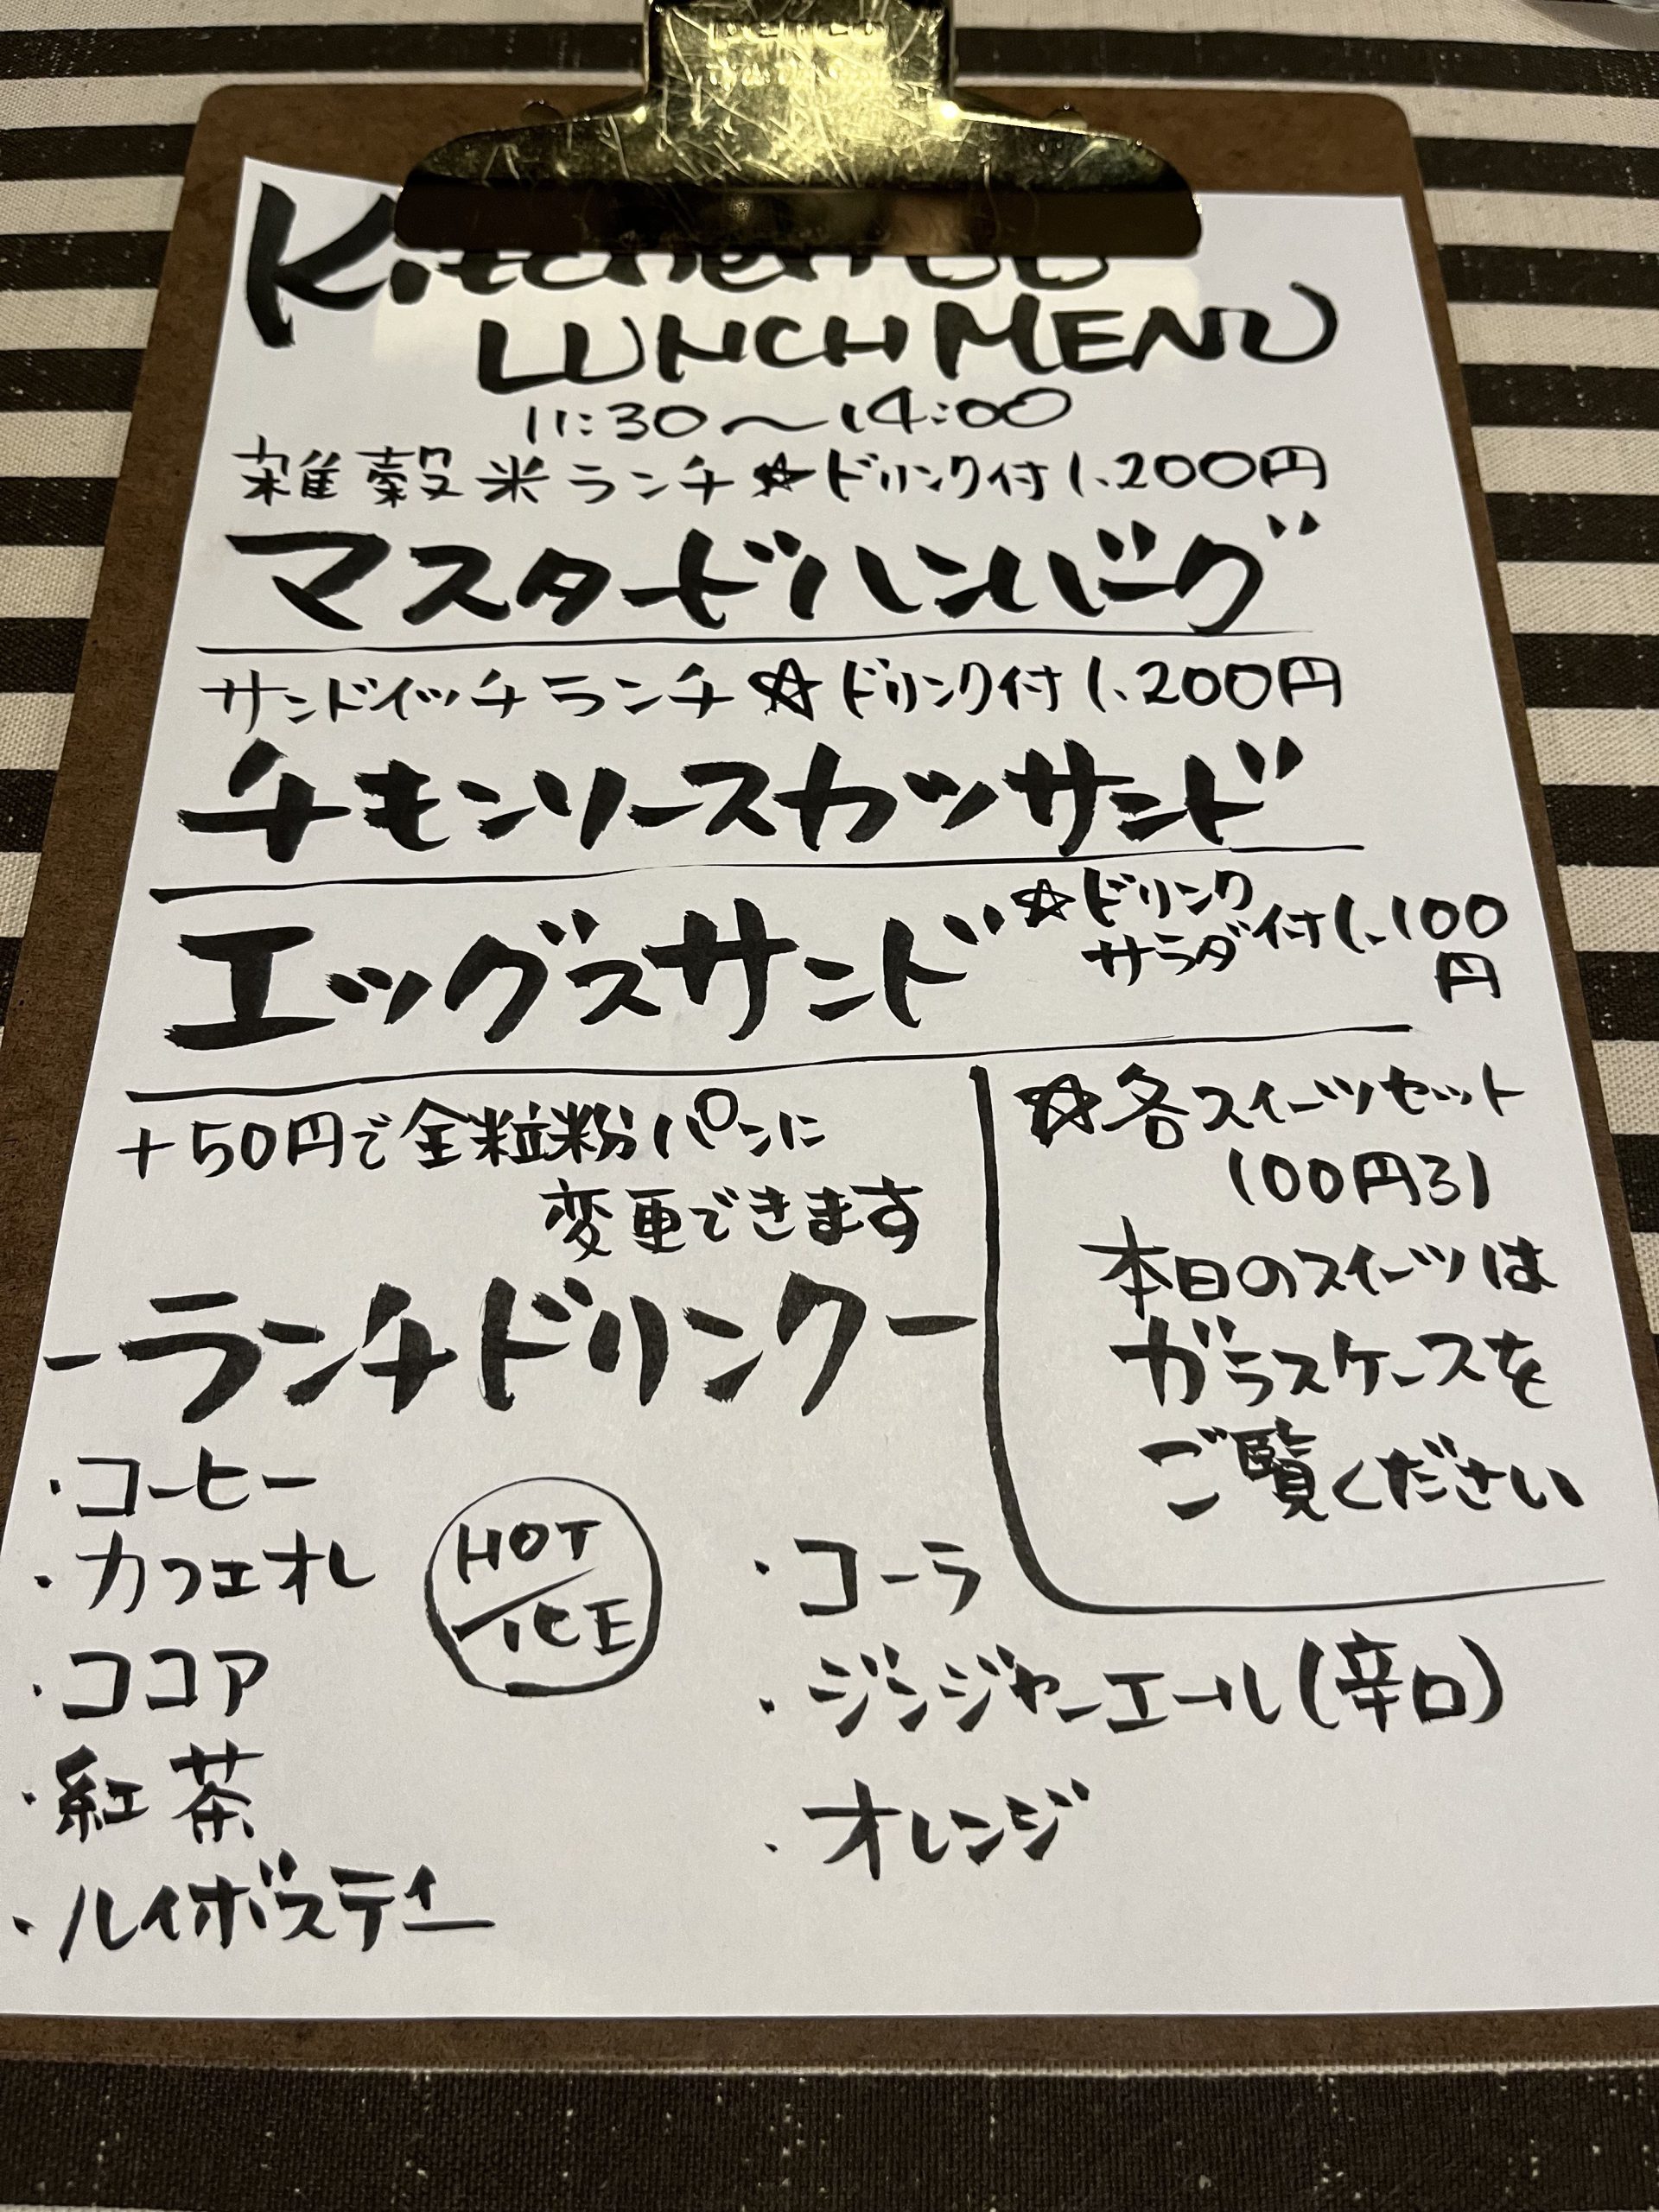 Kitchen
LUNCH MENU
11:30〜14:00
雑穀米ランチ☆ドリンク付1,200円
マスタードハンバーグ
サンドイッチランチ☆ドリンク付1,200円
チキンソースカツサンド
エッグスサンド☆ドリンクサラダ付1,100円
+50円で全粒粉パンに
変更できます
☆各スイーツセット
100円引
本日のスイーツは
ガラスケースを
ご覧ください
-ランチドリンク-
・コーヒー
・カフェオレ
・ココア
・紅茶
・ルイボスティー
HOT/ICE
・コーラ
・ジンジャーエール(辛口)
・オレンジ